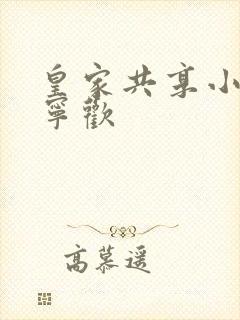 皇家共享小
寧歡
高慕遥